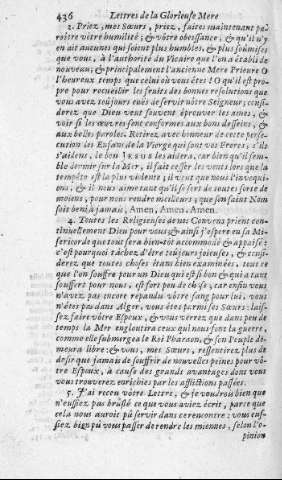 436 Lettres de la Glorieuse Mere
2. Priez, mes Sœurs, priez, faites maintenant pa-
roître vôtre humilité; & vôtre obeïssance, & qu'il n'y
en ait aucunes qui soient plus humbles, & plus soûmises
que vous, à l'authorité du Vicaire que l'on a établi de
nouveau; & principalement l'ancienne Mere Prieure O
l'heureux temps que celui où vous étes! O qu'il est pro-
pre pour recueillir les fruits des bonnes resolutions que
vous avez toûjours euës de servir nôtre Seigneur; consi-
derez que Dieu veut souvent éprouver les ames, &
voir si les œuvres sont conformes aux bons desseins, &
aux belles paroles. Retirez avec honneur de cette perse-
cution les Enfans de la Vierge qui sont vos Freres; s'ils
s'aident, le bon JESUS les aidera, car bien qu'il sem-
ble dormir sur la Mer, il fait cesser les vents lors que la
tempête est la plus violente; il veut que nous l'invoqui-
ons, & il nous aime tant qu'il se sert de toutes sorte de
moiens, pour nous rendre meilleurs; que son saint Nom
soit beni à jamais, Amen, Amen, Amen.
4. Toutes les Religieuses de nos Convens prient con-
tinuellement Dieu pour vous & ainsi j'espere en sa Mi-
sericorde que tout sera bien-tôt accommodé & appaisé:
c'est pourquoi tâchez d'être toûjours joieuses, & consi-
derez que toutes choses étant bien examinées, tout ce
que l'on souffre pour un Dieu qui est si bon & qui a tant
souffert pour nous, est fort peu de chose, car enfin vous
n'avez pas encore repandu vôtre sang pour lui, vous
n'êtes pas dans Alger, vous êtes parmi ses Sœurs: lais-
sez faire vôtre Espoux, & vous verrez que dans peu de
temps la Mer engloutira ceux qui nous font la guerre,
comme elle submergea le Roi Pharaon, & son Peuple de-
meura libre: & vous, mes Sœurs, ressentirez plus de
desir que jamais de souffrir de nouvelles peines pour vô-
tre Espoux, à cause des grands avantages dont vous
vous trouverez enrichies par les afflictions passées.
5. J'ai receu vôtre Lettre, & je voudrois bien que
n'eussiez pas brûslé ce que vous aviez écrit, parce que
cela nous auroit pû servir dans ce rencontre: vous eus-
siez bien pû vous passer de rendre les miennes, selon l'o-
pinion